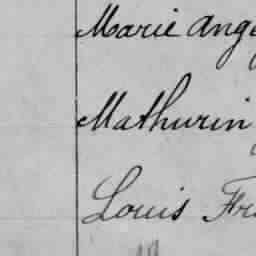 Marie Ang
Mathurin
Louis Fr